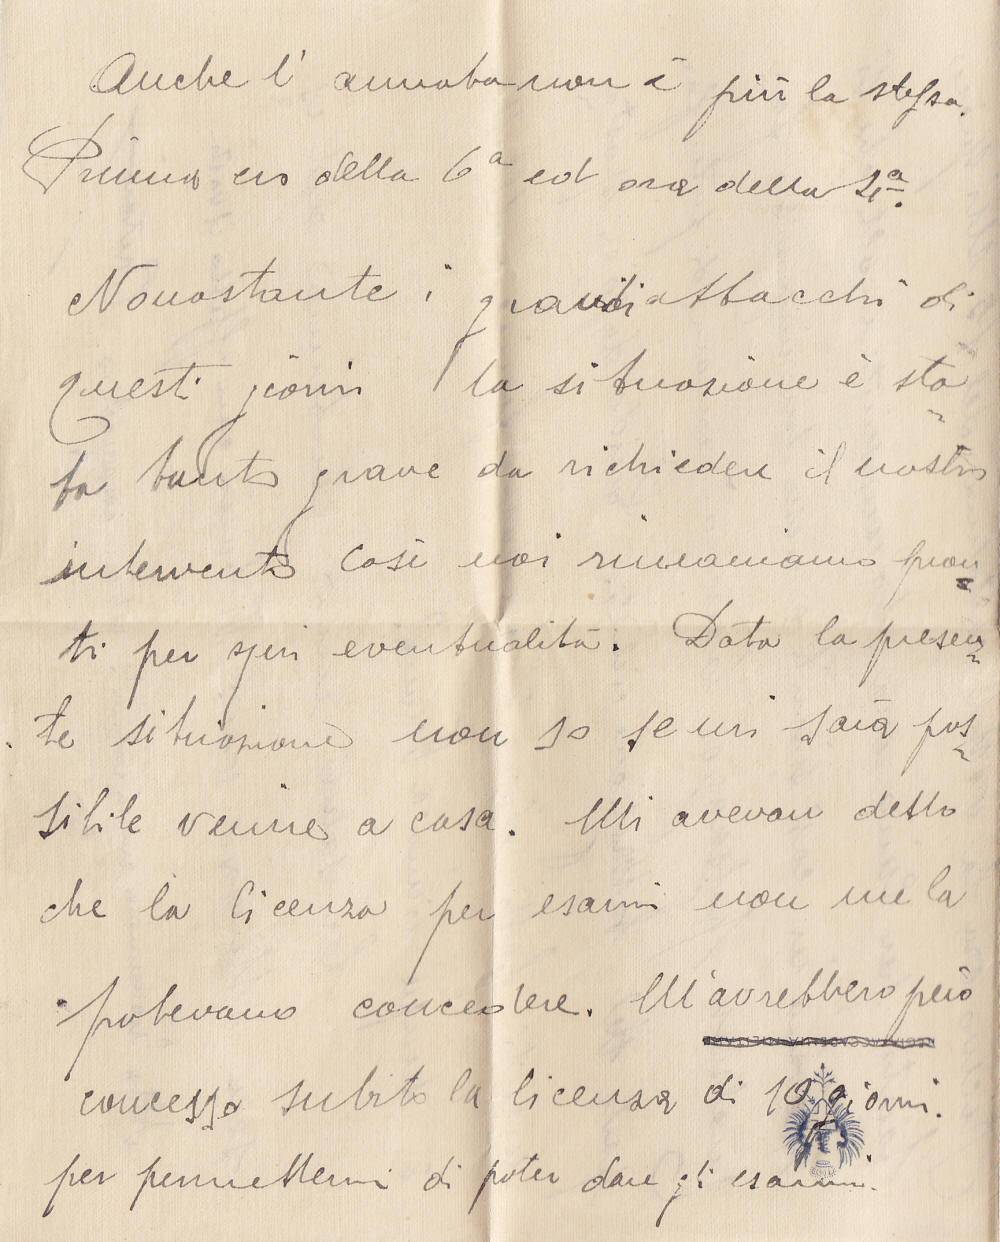 Anche l' armata non è più la stessa.
Prima ero della 6ª ed ora della 4ª.
Nonostante i grandi attacchi di
questi giorni la situazione è sta
ta tanto grave da richiedere il nostro
intervento Così noi rimaniamo pron
ti per ogni eventualità. Data la presen
te situazione non so se mi sarà pos
sibile venire a casa. Mi avevan detto
che la licenza per esami non me la
potevano concedere. M'avrebbero però
concesso subito la licenza di 10 giorni.
per permettermi di poter dare gli esami.